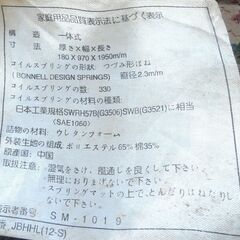 家庭用品品質表示法に基づく表示
構造 一体式
寸法 厚さ×幅×長さ
180 X 970 X 1950m/m
コイルスプリングの形状 つづみ形はね
(BONNELL DESIGN SPRINGS) 直径2.3m/m
コイルスプリングの個数 330
コイルスプリングの材料の種類
日本工業規格SWRH57B(G3506)SWB(G3521)に相当
(SAE1060)
詰物の材料 ウレタンフォーム
外装生地の組成 ポリエステル65% 綿35%
原産国 中国
取扱注意 -湿気をさけ、風通しを良くして下さい。
-無理に折りまげないで下さい。
-スプリングマットの上で、とんだりはねたり
しないで下さい。
表示者番号 SM-1019
JBHHL(12-S)